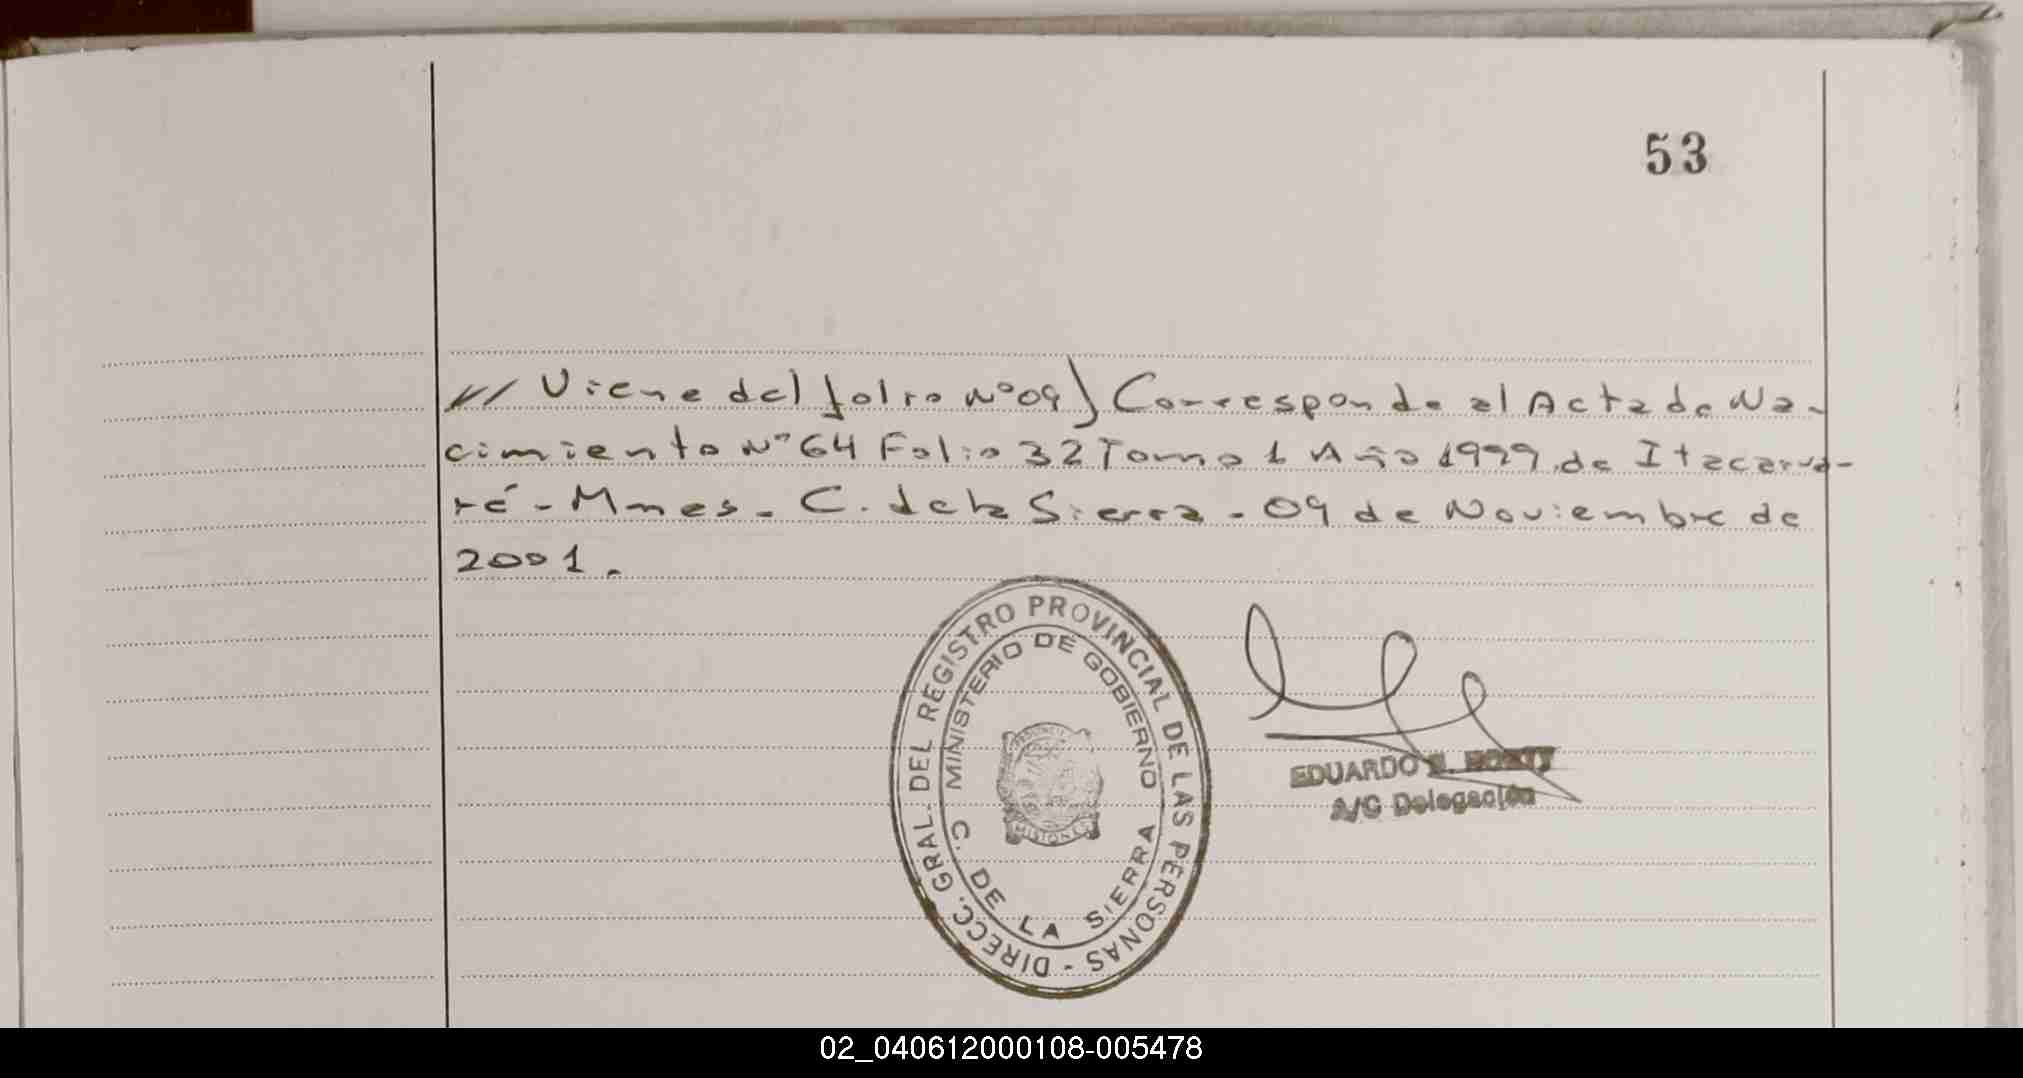 53
/// Viene del folio Nº 09) Corresponde al Acta de Na-
cimiento Nº 64 Folio 32 Tomo 1 Año 1999, de Itacarua-
ré - Mnes. C. de la Sierra - 09 de Noviembre de
2001.
DIRECC. GRAL. DEL REGISTRO PROVINCIAL DE LAS PERSONAS -
MINISTERIO DE GOBIERNO
C. DE LA SIERRA
MISIONES
EDUARDO
A/C Delegación
02_040612000108-005478